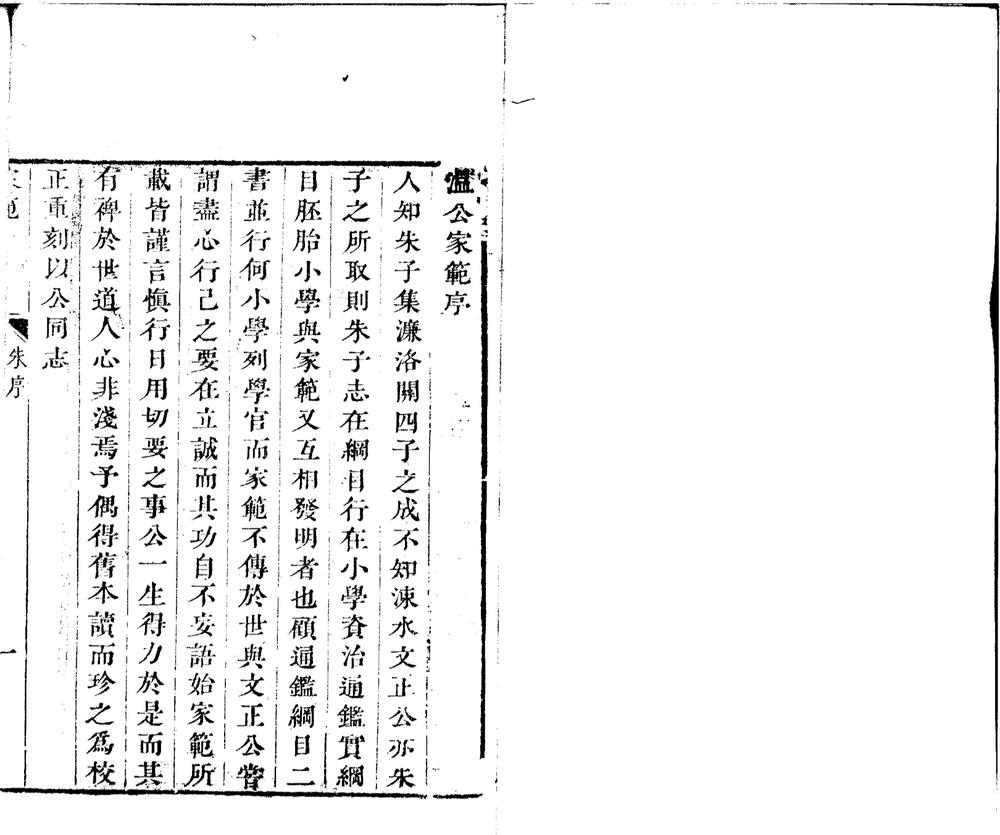 溫公家範序
人知朱子集濂洛關四子之成不知涑水文正公亦朱
子之所取則朱子志在綱目行在小學資治通鑑實綱
目胚胎小學與家範又互相發明者也顧通鑑綱目二
書並行何小學列學官而家範不傳於世與文正公嘗
謂盡心行己之要在立誠而其功自不妄語始家範所
載皆謹言愼行日用切要之事公一生得力於是而其
有裨於世道人心非淺焉予偶得舊本讀而珍之爲校
正重刻以公同志
朱序
一